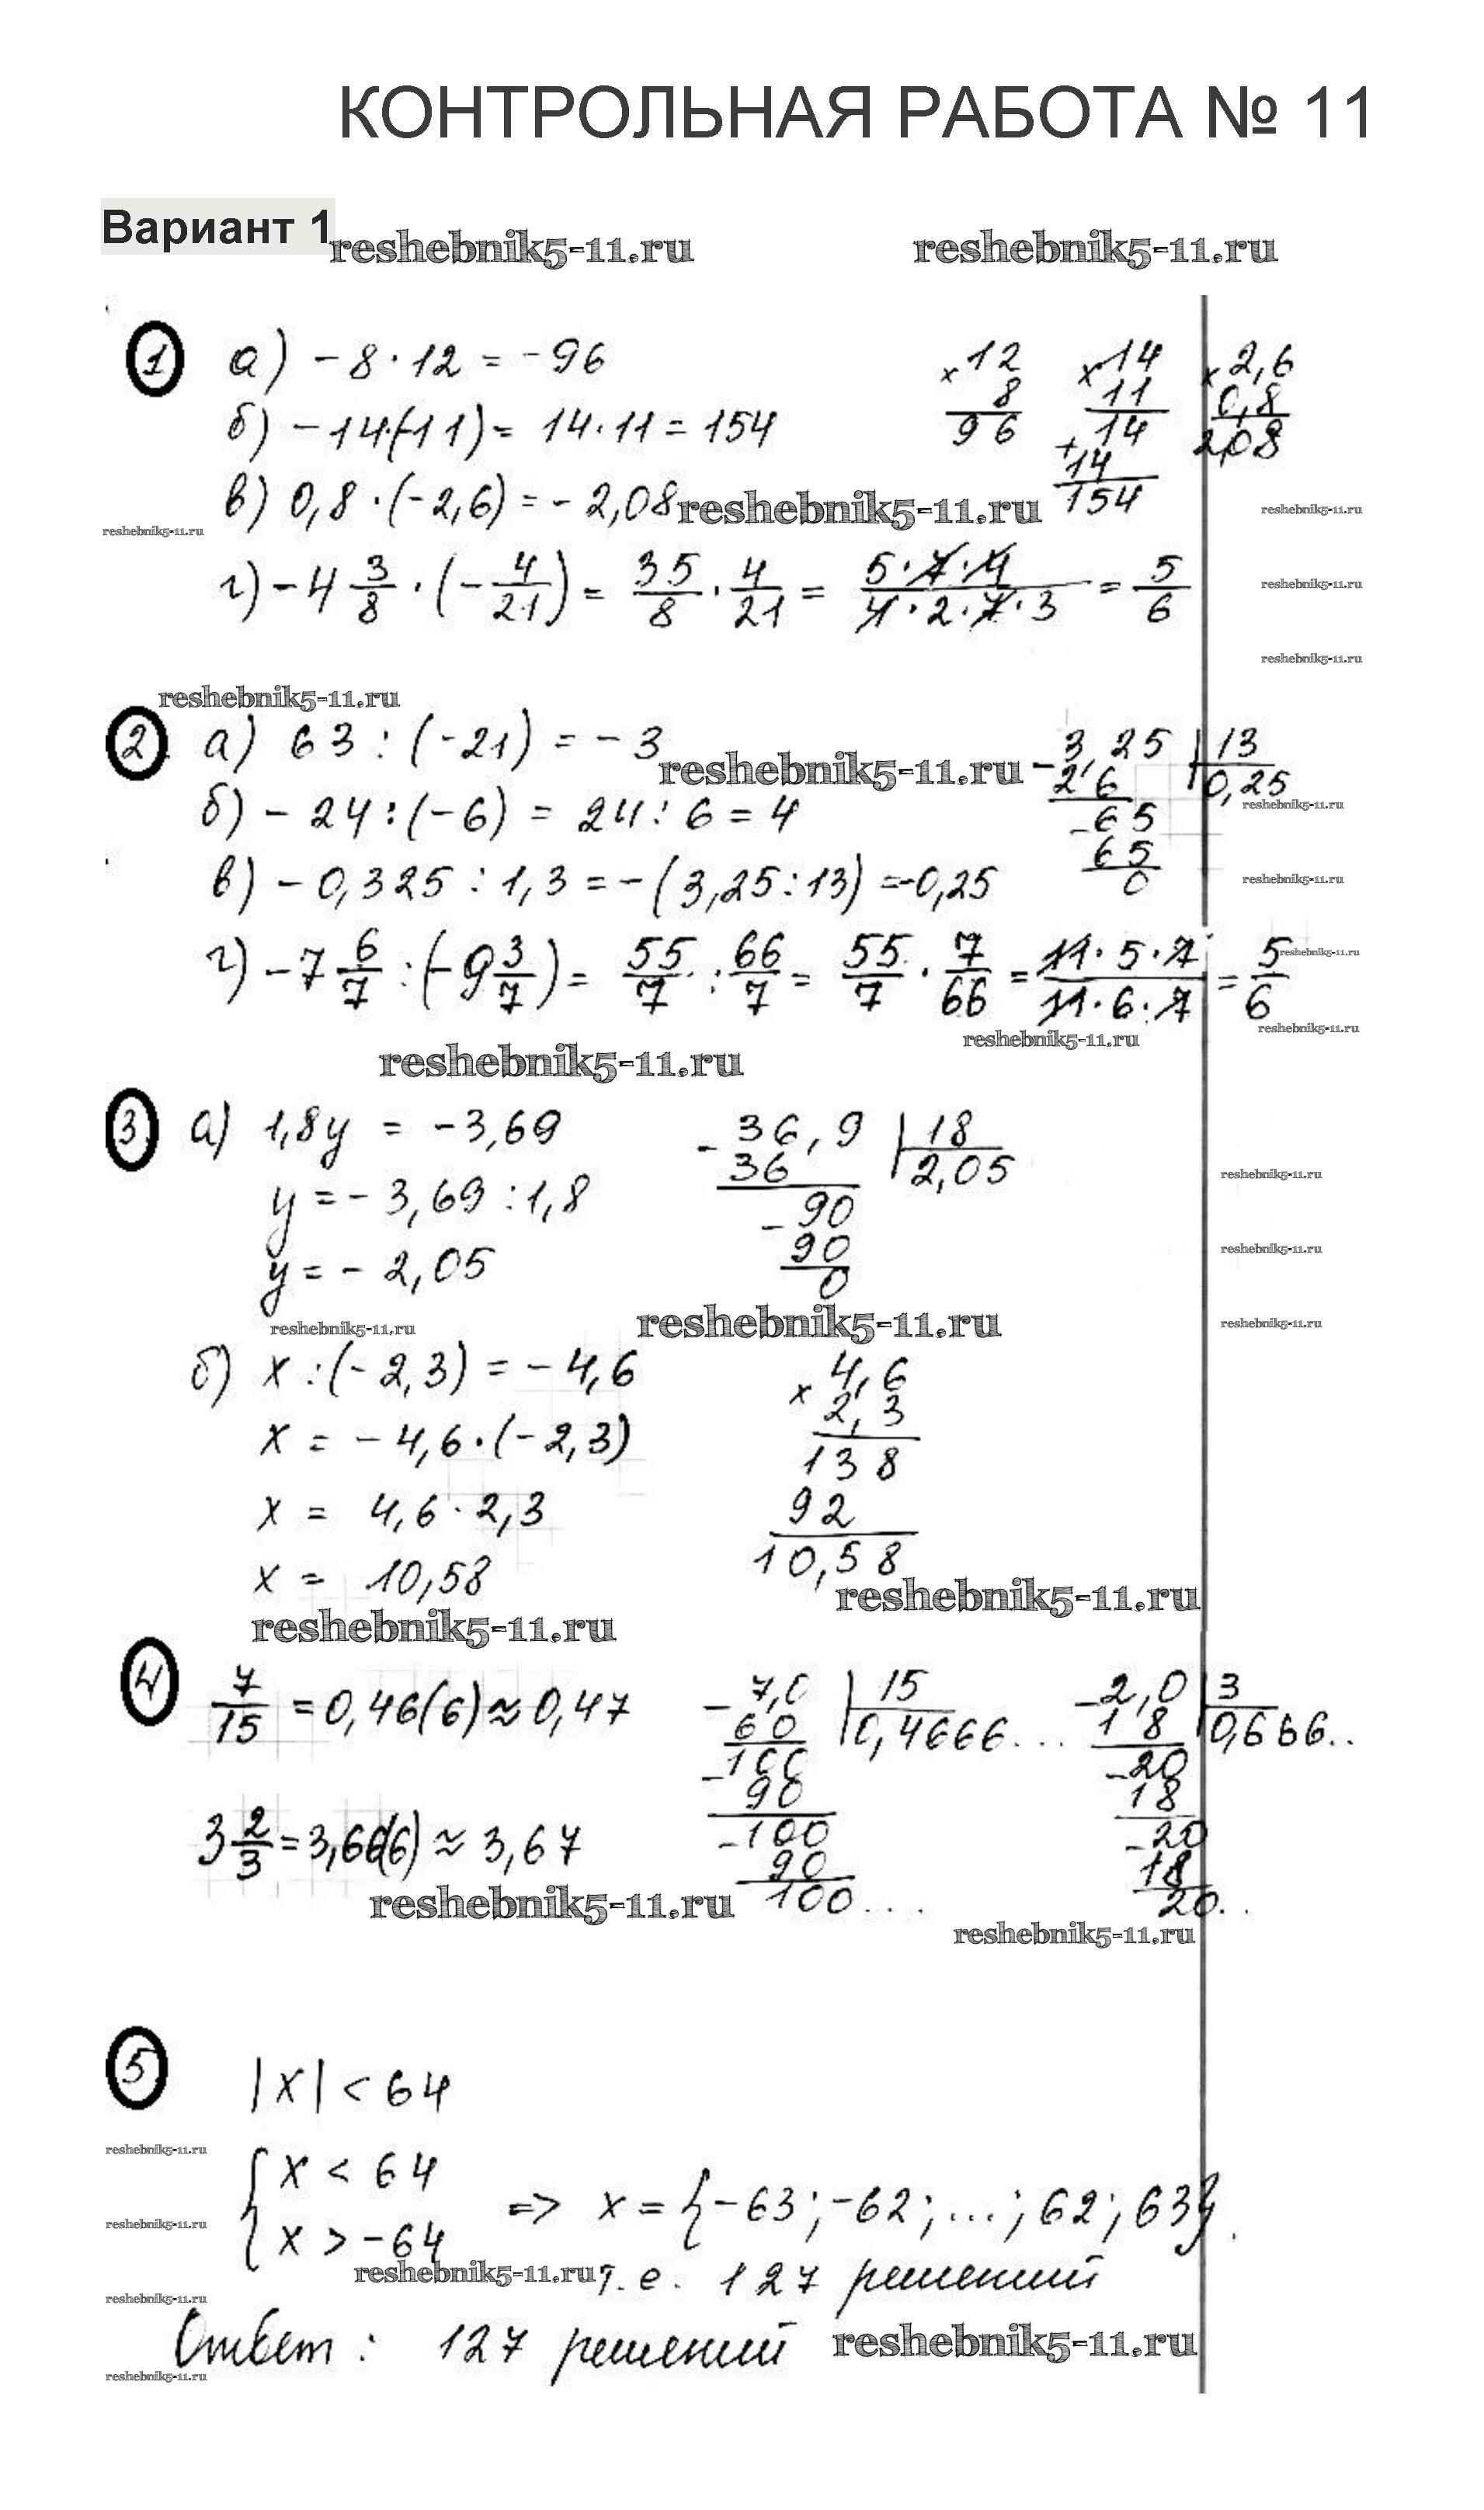 КОНТРОЛЬНАЯ РАБОТА № 11
Вариант 1
reshebnik5-11.ru reshebnik5-11.ru
1 а) -8·12 = -96
×12 8 96
×14 11 +14 14 154
×2,6 0,8 2,08
б) -14·(-11) = 14·11 = 154
в) 0,8·(-2,6) = -2,08
reshebnik5-11.ru
reshebnik5-11.ru reshebnik5-11.ru
г) -4 3/8 · (-4/21) = 35/8 · 4/21 = 5·7·4/4·2·7·3 = 5/6
reshebnik5-11.ru
reshebnik5-11.ru
reshebnik5-11.ru
2 а) 63 : (-21) = -3
reshebnik5-11.ru
-3,25 |13 2 6 0,25 -65 65 0
б) -24 : (-6) = 24 : 6 = 4
reshebnik5-11.ru
в) -0,325 : 1,3 = -(3,25 : 13) = -0,25
reshebnik5-11.ru
г) -7 6/7 : (-9 3/7) = 55/7 : 66/7 = 55/7 · 7/66 = 11·5·7/11·6·7 = 5/6
reshebnik5-11.ru
reshebnik5-11.ru reshebnik5-11.ru
reshebnik5-11.ru
3 а) 1,8y = -3,69
-36,9 |18 36 2,05 -90 90 0
y = -3,69 : 1,8
reshebnik5-11.ru
y = -2,05
reshebnik5-11.ru
reshebnik5-11.ru reshebnik5-11.ru reshebnik5-11.ru
б) x : (-2,3) = -4,6
×4,6 2,3 138 92 10,58
x = -4,6·(-2,3)
x = 4,6·2,3
x = 10,58
reshebnik5-11.ru
reshebnik5-11.ru
4 7/15 = 0,46(6) ≈ 0,47
-7,0 |15 60 0,4666... -100 90 -100 90 100...
-2,0 |3 1 8 0,666.. -20 18 -20 18 20..
3 2/3 = 3,66(6) ≈ 3,67
reshebnik5-11.ru
reshebnik5-11.ru
5 |x| < 64
reshebnik5-11.ru
{ x < 64
x > -64 => x = {-63; -62; ...; 62; 63}.
reshebnik5-11.ru
reshebnik5-11.ru т.е. 127 решений
reshebnik5-11.ru
Ответ: 127 решений reshebnik5-11.ru
reshebnik5-11.ru